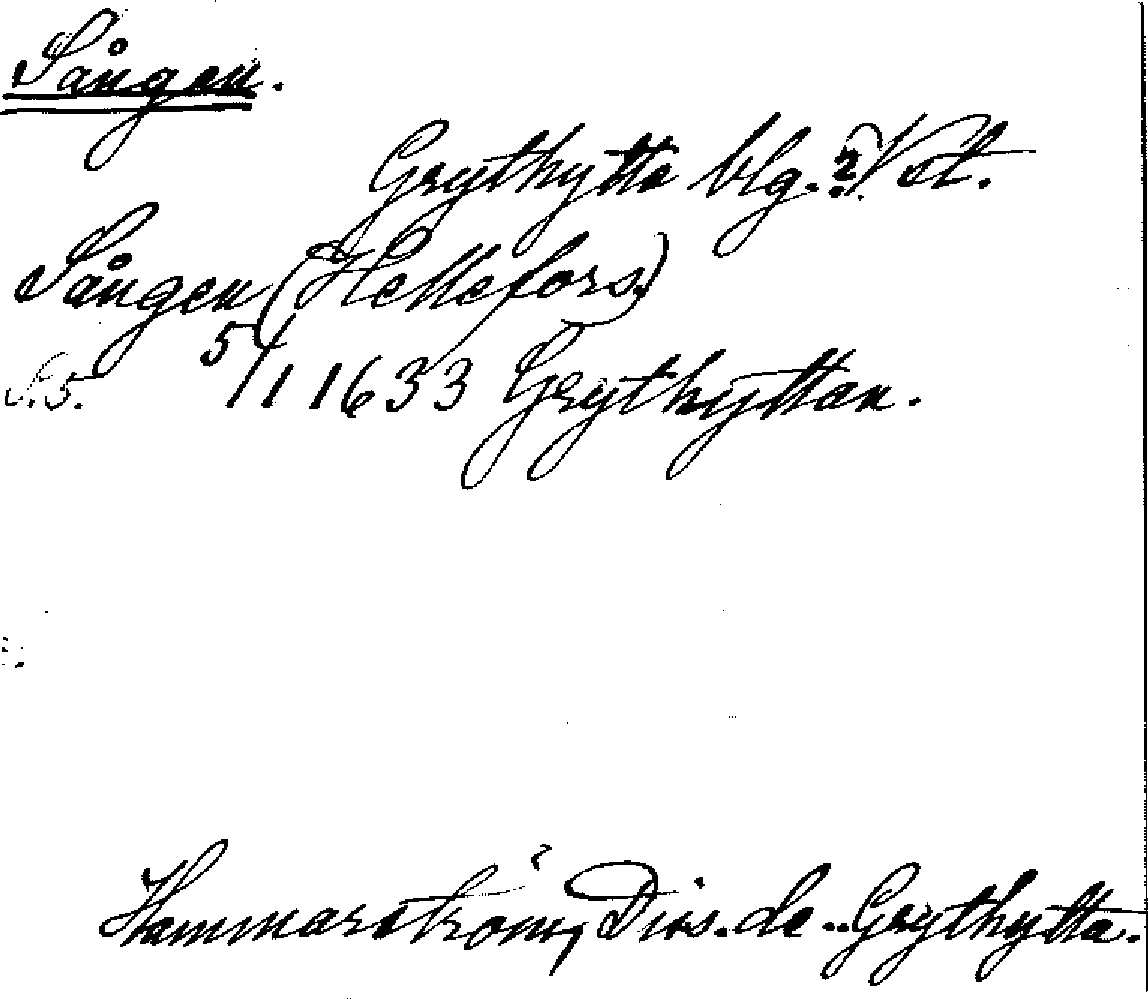 Sången.
Grythytta blg. ? Vstl.
Sången (Hellefors)
S.5. 5/1 1633 Grythyttan.
Hammarström, Diss. de .. Grythytta.